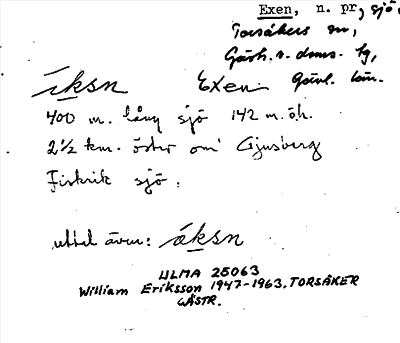 Exen, n. pr, sjö,
Torsåkers sn,
Gästr. ö. doms. hg,
íksn Exen Gävl. län.
400 m. lång sjö 142 m.ö.h.
2½ km. öster om Gjusberg
Fiskrik sjö.
uttal även: ǽksn
ULMA 25063
William Eriksson 1947-1963. TORSÅKER
GÄSTR.